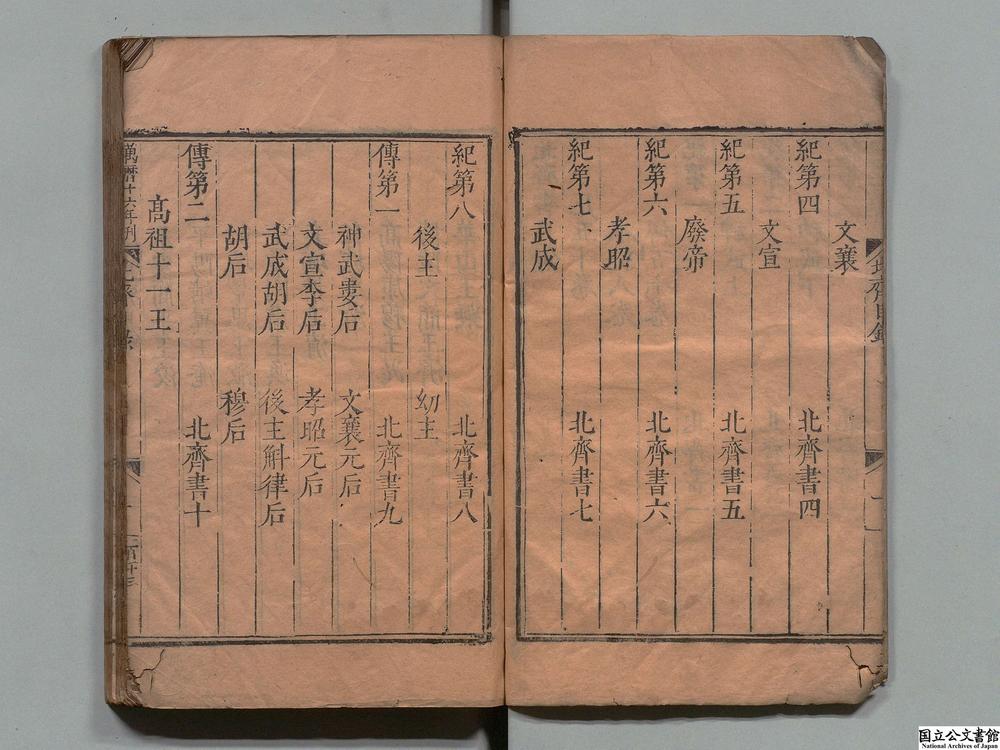 北齊目錄
文襄
紀第四 北齊書四
文宣
紀第五 北齊書五
廢帝
紀第六 北齊書六
孝昭
紀第七 北齊書七
武成
紀第八 北齊書八
後主 幼主
傳第一 北齊書九
神武婁后 文襄元后
文宣李后 孝昭元后
武成胡后 後主斛律后
胡后 穆后
傳第二 北齊書十
高祖十一王
萬曆十六年刊
国立公文書館
National Archives of Japan